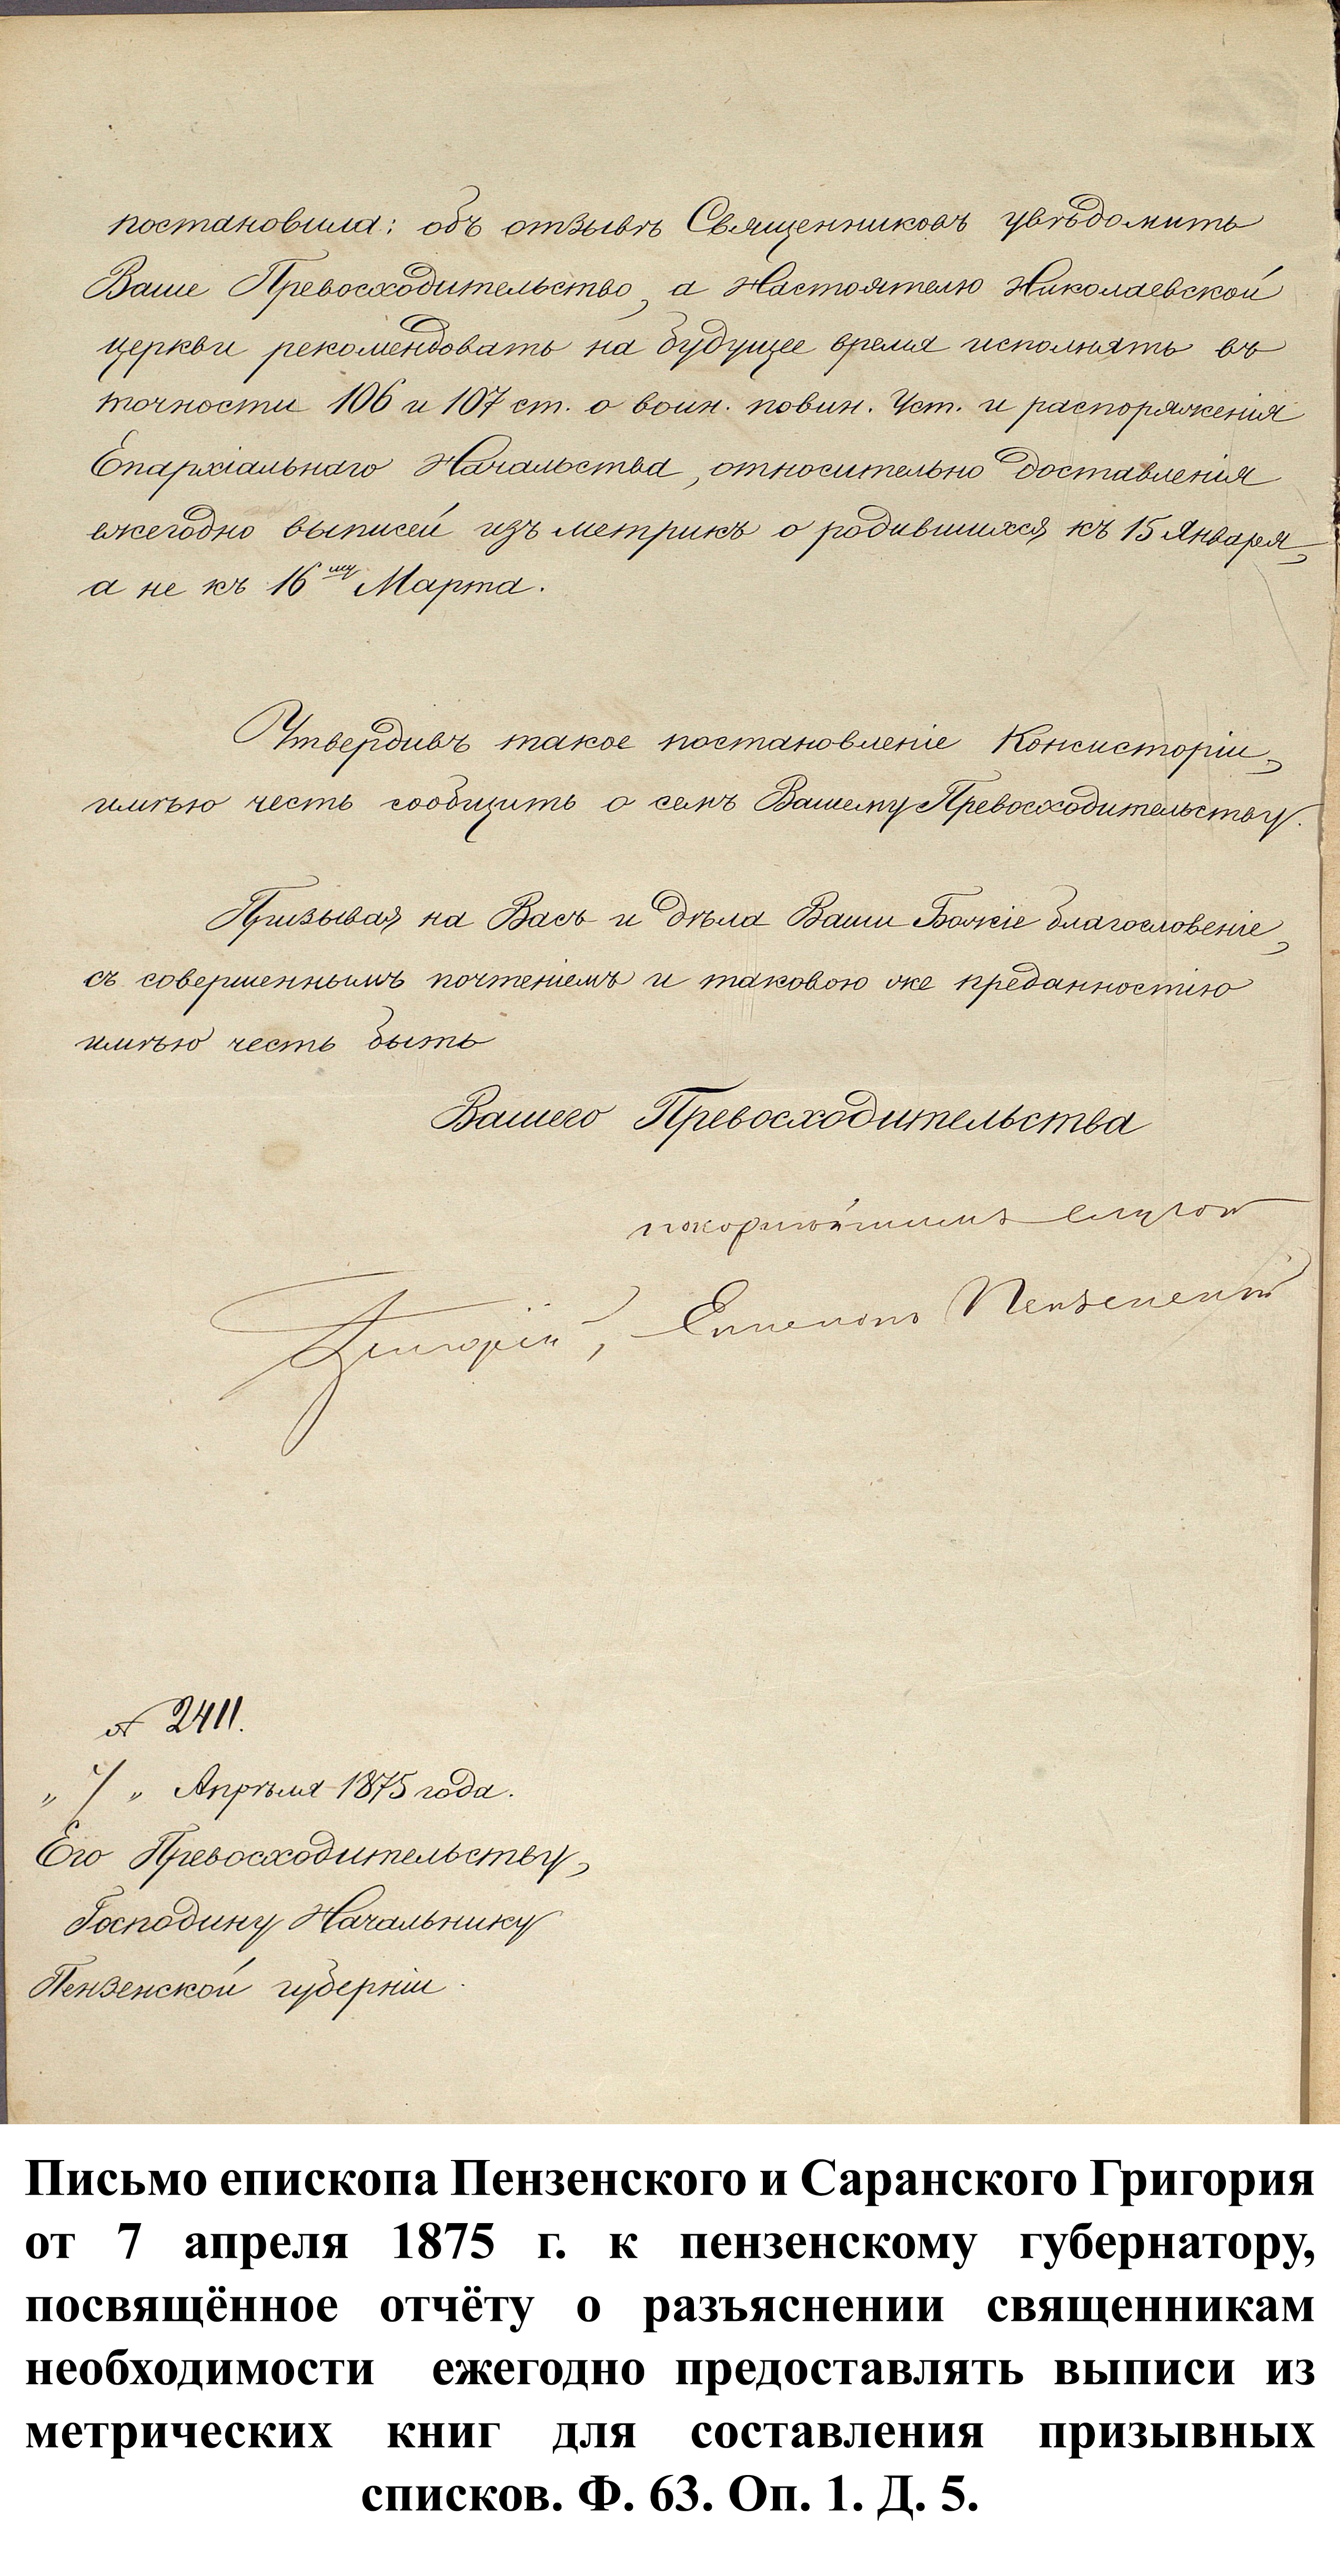 постановила: объ отзывѣ Священниковъ увѣдомить
Ваше Превосходительство, а Настоятелю Николаевской
церкви рекомендовать на будущее время исполнять въ
точности 106 и 107 ст. о воин. повин. Уст. и распоряженія
Епархіальнаго Начальства, относительно доставленія
ежегодно выписей изъ метрикъ о родившихся къ 15 Января,
а не къ 16му Марта.
Утвердивъ такое постановленіе Консисторіи,
имѣю честь сообщить о семъ Вашему Превосходительству.
Призывая на Васъ и дѣла Ваши Божіе благословеніе,
съ совершеннымъ почтеніемъ и таковою же преданностію
имѣю честь быть
Вашего Превосходительства
покорнѣйшимъ слугою
Григорій, Епископъ Пензенскій
№ 2411.
„ 7 „ Апрѣля 1875 года.
Его Превосходительству,
Господину Начальнику
Пензенской губерніи.
Письмо епископа Пензенского и Саранского Григория
от 7 апреля 1875 г. к пензенскому губернатору,
посвящённое отчёту о разъяснении священникам
необходимости ежегодно предоставлять выписи из
метрических книг для составления призывных
списков. Ф. 63. Оп. 1. Д. 5.